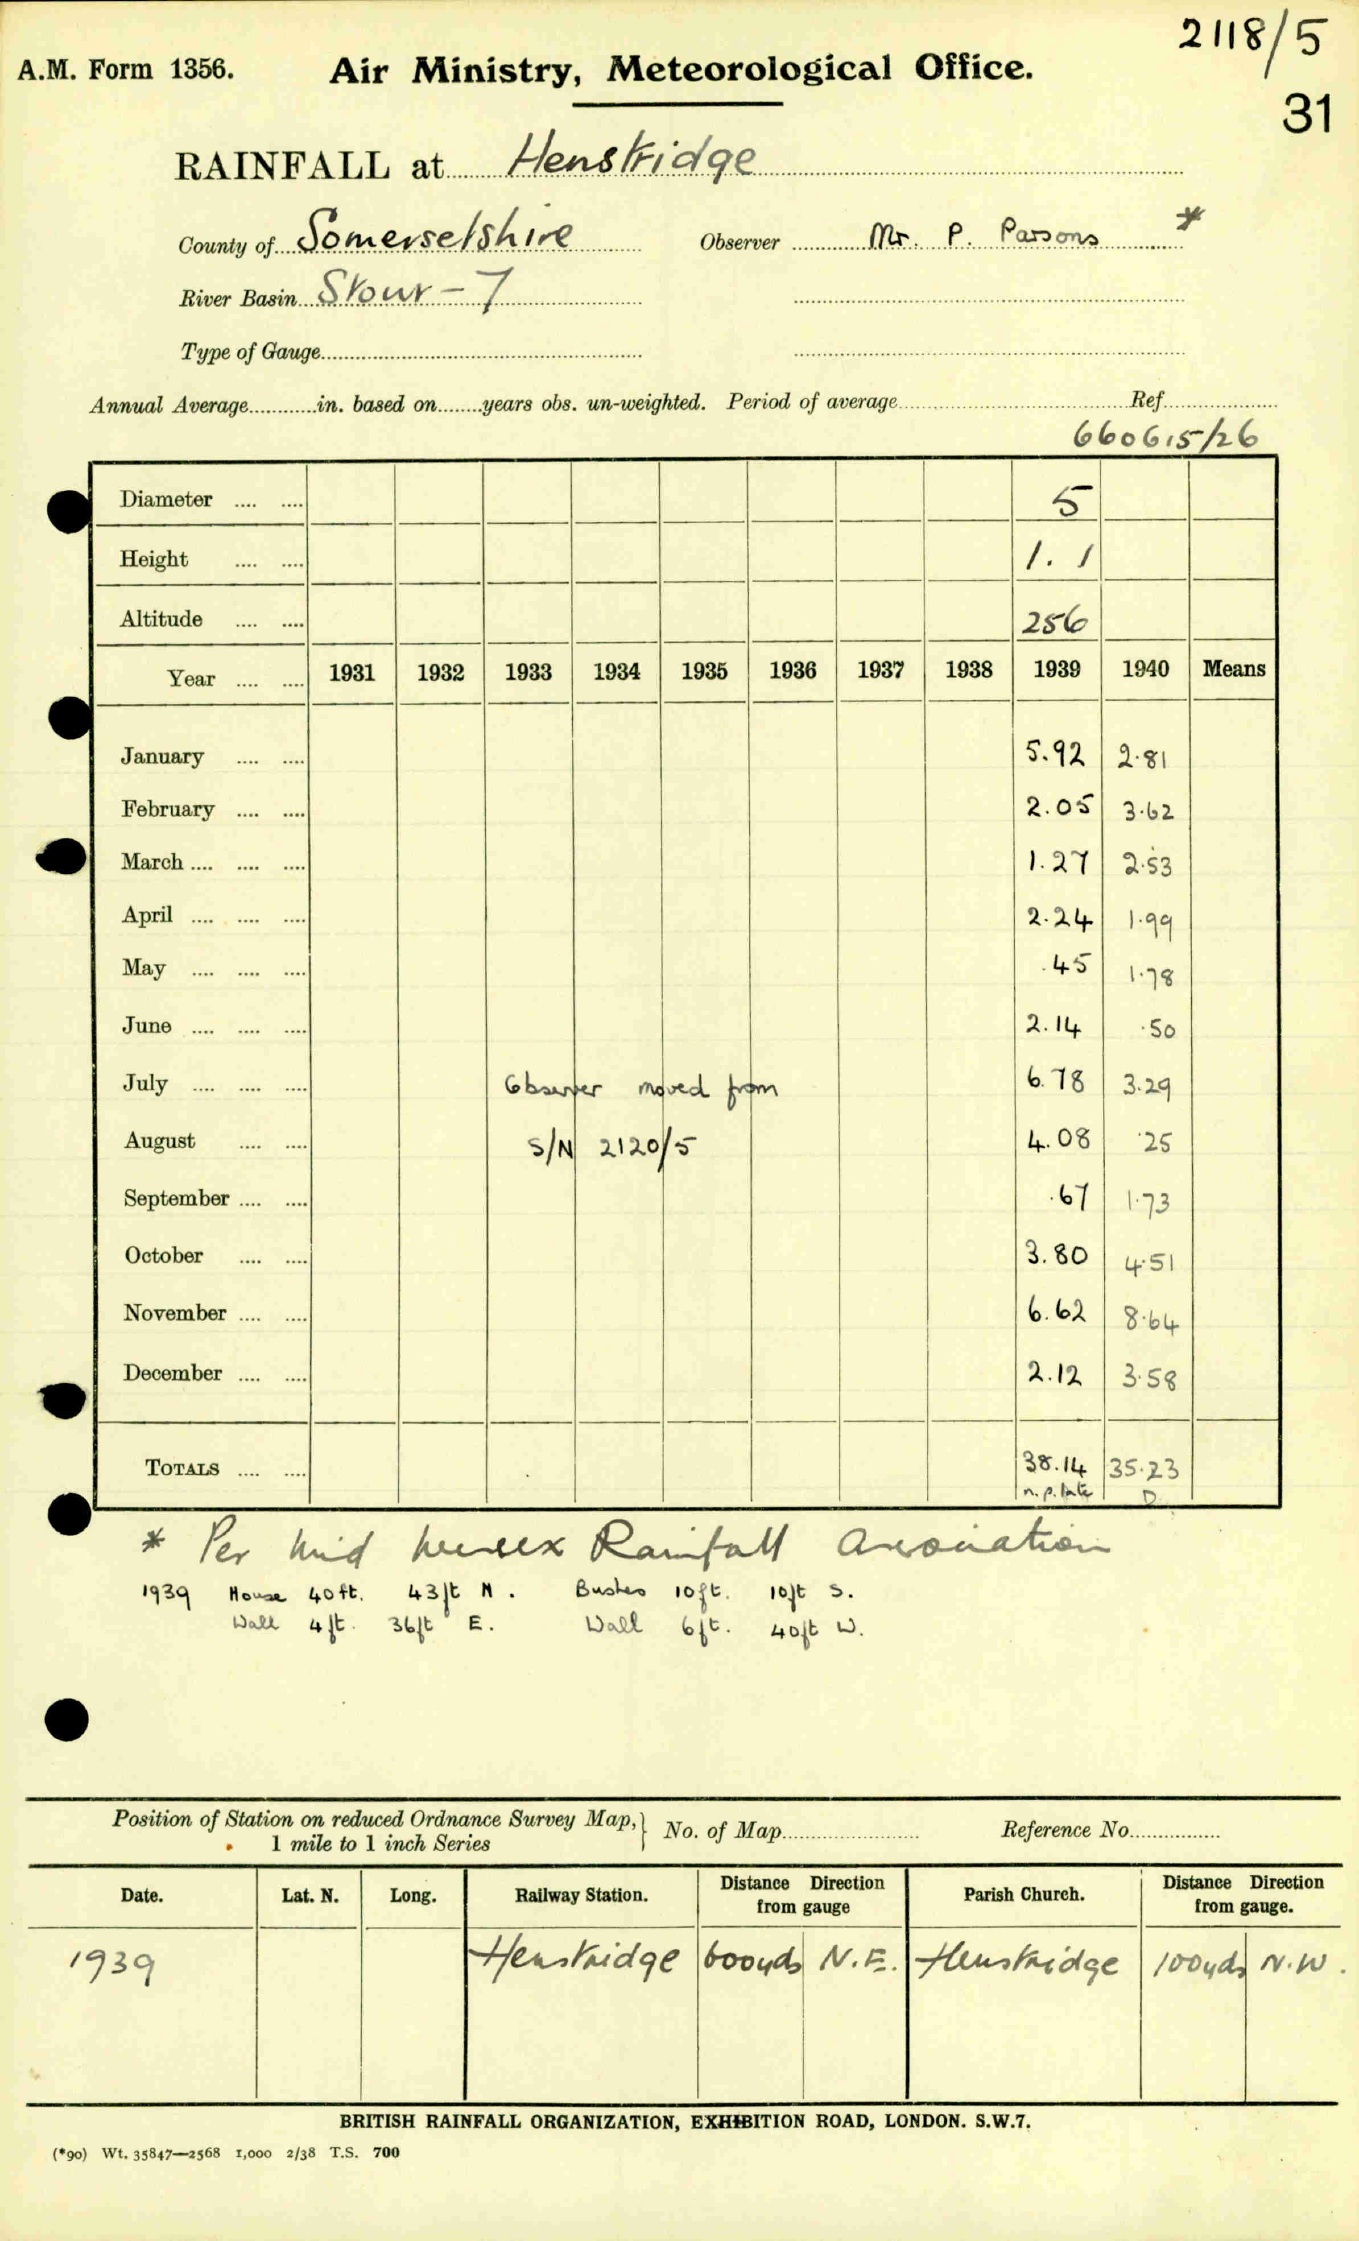 2118/5
A.M. Form 1356. Air Ministry, Meteorological Office.
31
RAINFALL at Henstridge
County of Somersetshire Observer Mr. P. Parsons *
River Basin Stour - 7
Type of Gauge
Annual Average in. based on years obs. un-weighted. Period of average Ref.
660615/26
Diameter 5
Height 1.1
Altitude 256
Year 1931 1932 1933 1934 1935 1936 1937 1938 1939 1940 Means
January 5.92 2.81
February 2.05 3.62
March 1.27 2.53
April 2.24 1.99
May .45 1.78
June 2.14 .50
July Observer moved from 6.78 3.29
August S/N 2120/5 4.08 .25
September .67 1.73
October 3.80 4.51
November 6.62 8.64
December 2.12 3.58
TOTALS 38.14 35.23
n.p. late D
* Per Mid Wessex Rainfall Association
1939 House 40ft. 43ft N. Bushes 10ft. 10ft S.
Wall 4ft. 36ft E. Wall 6ft. 40ft W.
Position of Station on reduced Ordnance Survey Map, } No. of Map Reference No.
1 mile to 1 inch Series
Date. Lat. N. Long. Railway Station. Distance Direction from gauge Parish Church. Distance Direction from gauge.
1939 Henstridge 600yds N.E. Henstridge 100yds N.W.
BRITISH RAINFALL ORGANIZATION, EXHIBITION ROAD, LONDON. S.W.7.
(*90) Wt. 35847—2568 1,000 2/38 T.S. 700